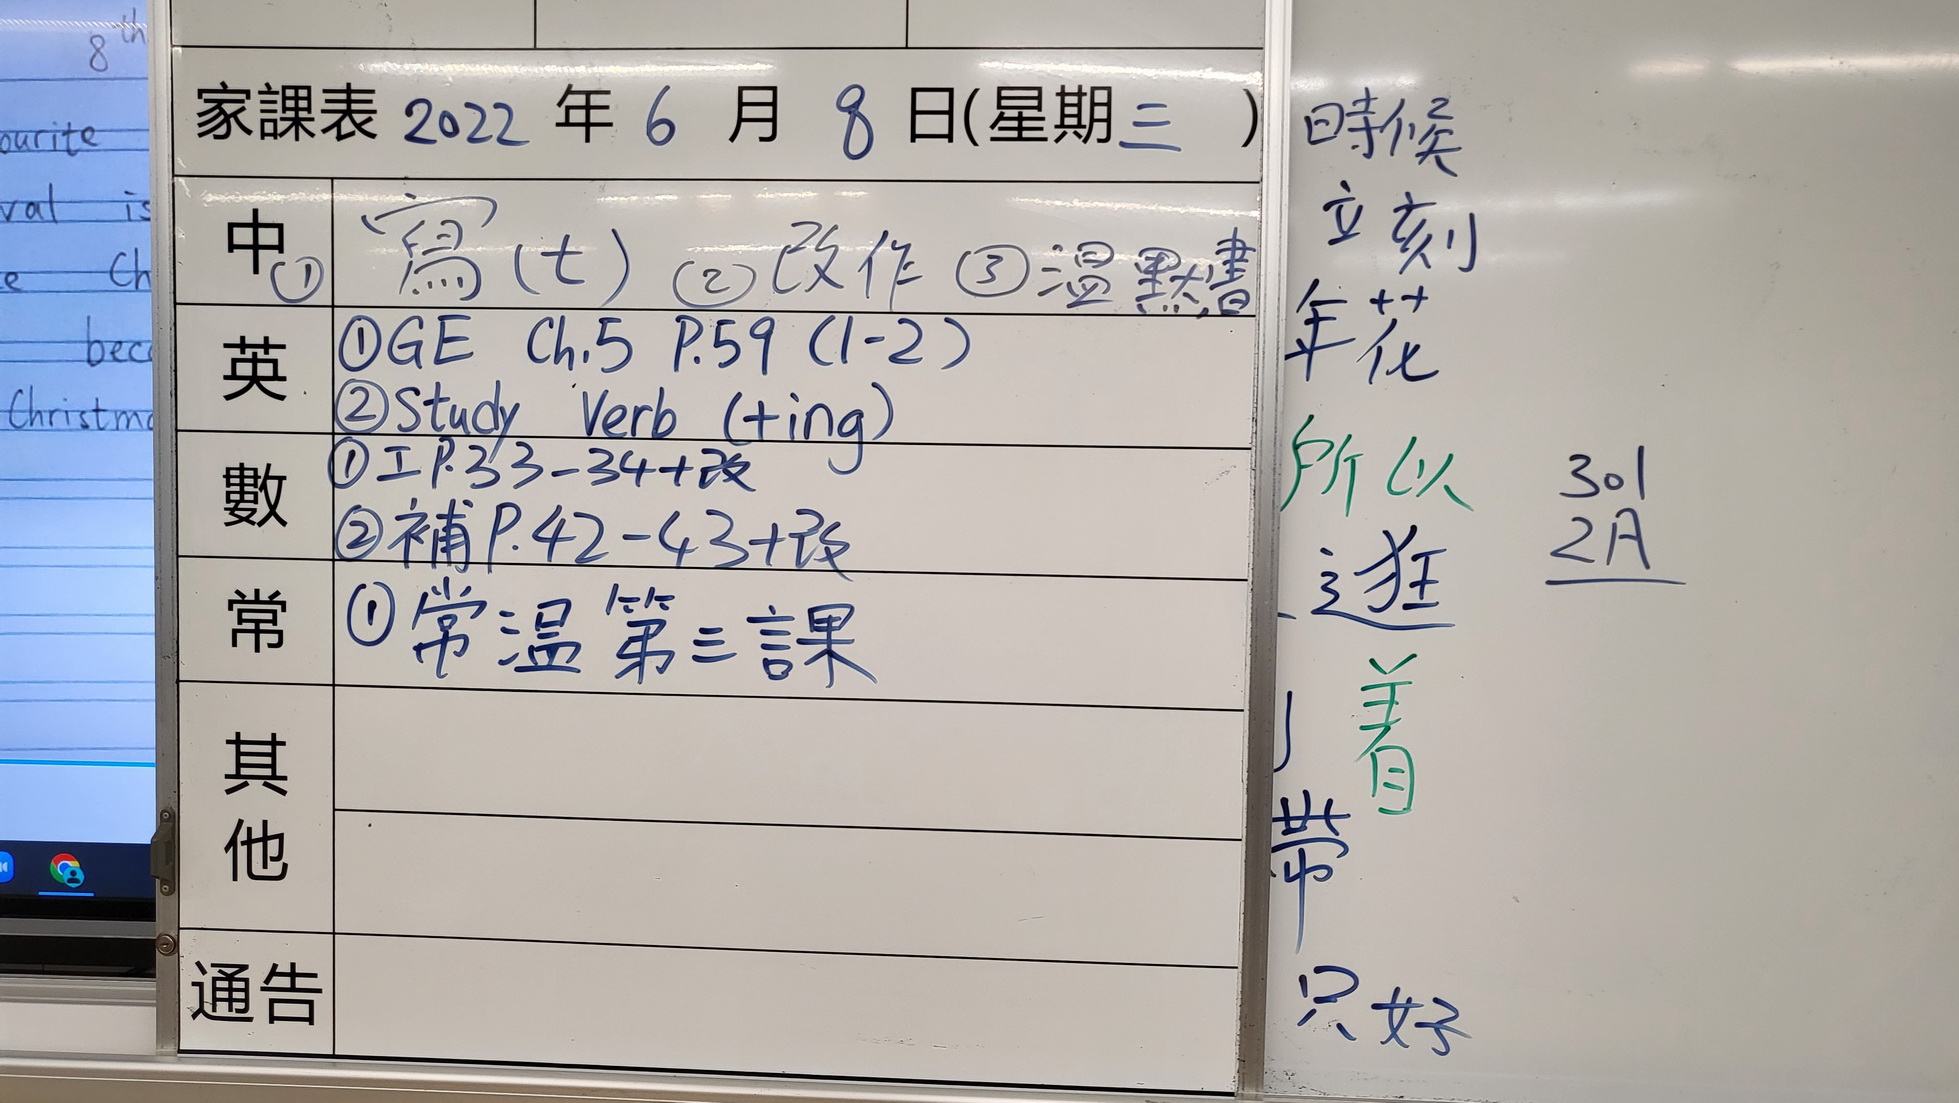 8th
ourite
val is
e Ch
beco
Christma
家課表 2022 年 6 月 8 日(星期三 )
中 ①寫(七) ②改作 ③温默書
英 ①GE Ch.5 P.59 (1-2)
②Study Verb (+ing)
數 ①工P.33-34+改
②補P.42-43+改
常 ①常温第三課
其他
通告
時候
立刻
年花
所以
逛
着
帶
只好
301
2A